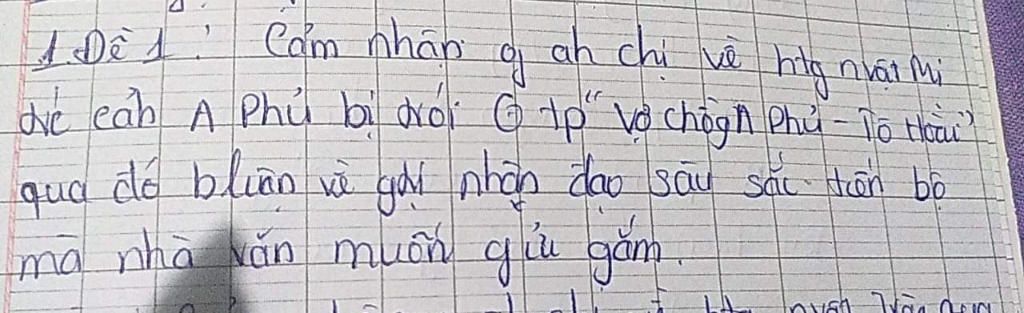 1. Đề 1: Cảm nhận of ah chị về htg nvật Mị
trc cảh A Phủ bị trói ở tp "Vợ chồg A Phủ - Tô Hoài"
qua đó bluận về gtrị nhân đạo sâu sắc
mà nhà văn muốn gửi gắm.